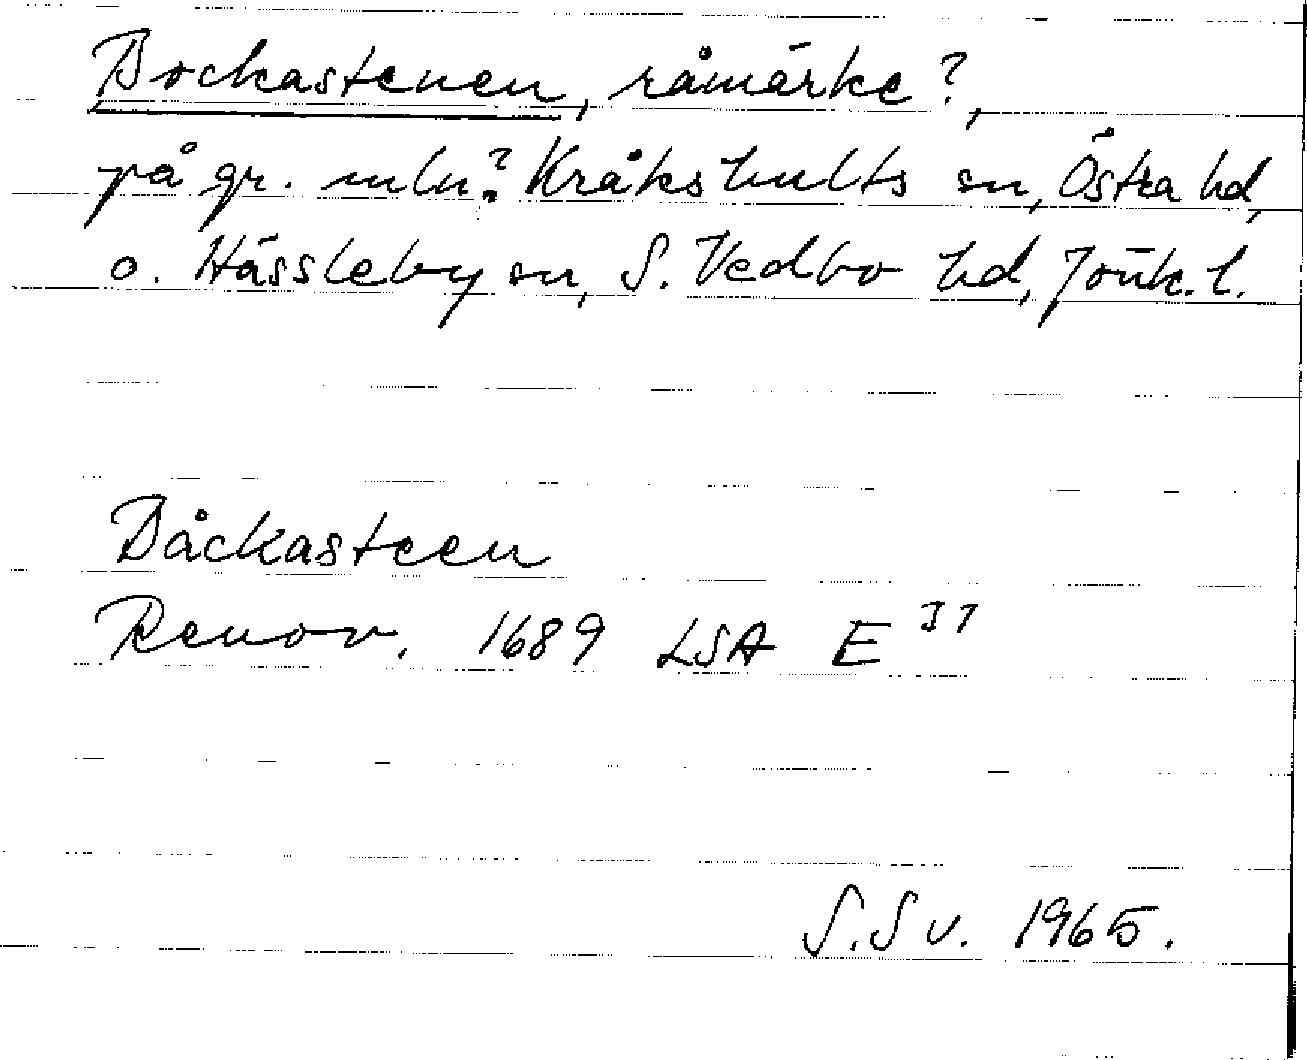 Bockastenen, råmärke?,
på gr. mln? Kråkshults sn, Östra hd,
o. Hässleby sn, S. Vedbo hd, Jönk. l.
Båckasteen
Renov. 1689 LSA E 37
S.Sv. 1965.